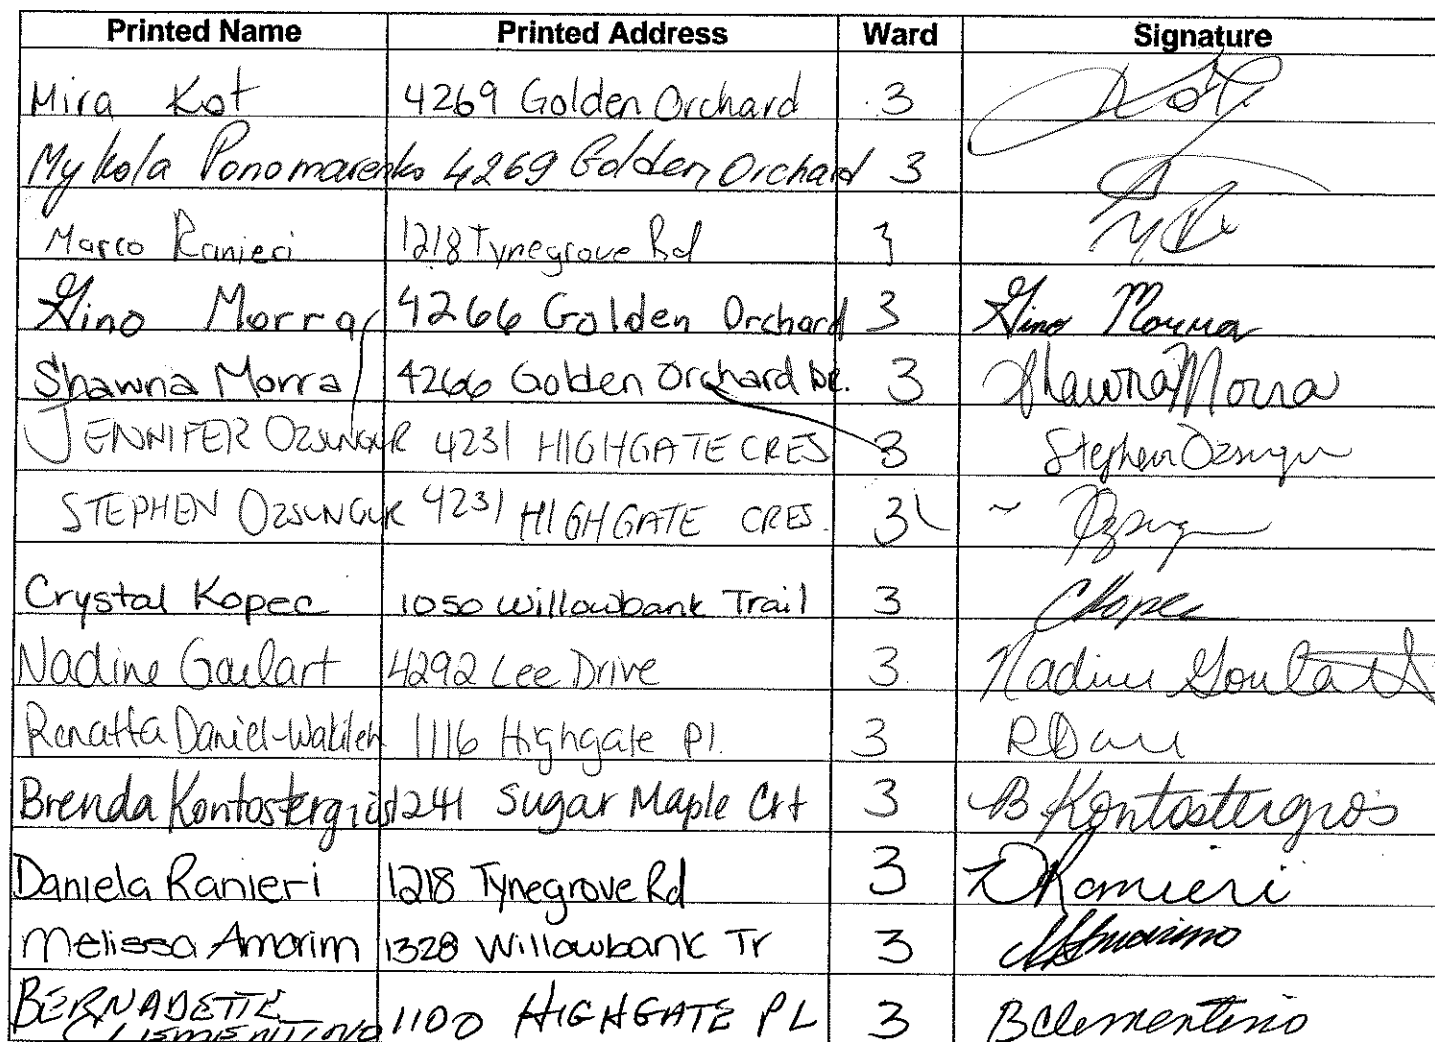 Printed Name Printed Address Ward Signature
Mira Kot 4269 Golden Orchard 3 Kot
Mykola Ponomarenko 4269 Golden Orchard 3
Marco Ranieri 1218 Tynegrove Rd 3
Gino Morra 4266 Golden Orchard 3 Gino Morra
Shawna Morra 4266 Golden Orchard Dr. 3 Shawna Morra
JENNIFER OZSUNGUR 4231 HIGHGATE CRES 3 Stephen Ozsungur
STEPHEN OZSUNGUR 4231 HIGHGATE CRES. 3 Ozsungur
Crystal Kopec 1050 Willowbank Trail 3 CKopec
Nadine Goulart 4292 Lee Drive 3 Nadine Goulart
Renatta Daniel-Wakileh 1116 Highgate Pl. 3
Brenda Kontostergios 1241 Sugar Maple Crt 3 B Kontostergios
Daniela Ranieri 1218 Tynegrove Rd 3 DRanieri
Melissa Amorim 1328 Willowbank Tr 3
BERNADETTE 1100 HIGHGATE PL 3 BClementino
CLEMENTINO